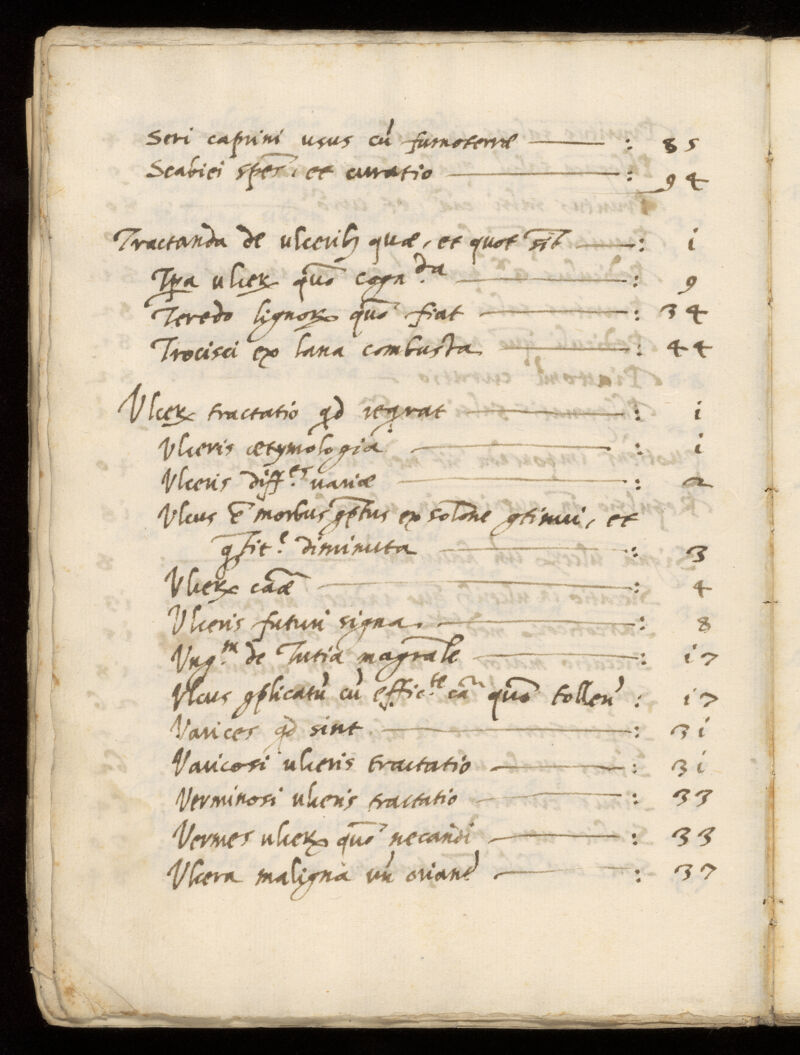 Seri caprini usus cū fumoterræ : 85
Scabiei spēs, et curatio : 94
Tractanda de ulcerib9 quæ, et quot sīt : i
ulcer quō cogn.da : 9
Teredo lignor quō fiat : 34
Trocisci ex lana combusta : 44
Ulcer tractatio qd reqrat : i
Ulceris ætymologia : i
Ulceris diff.es variæ : 2
Ulcus ē morbus ex solōne et
diminuta : 3
Ulcer caæ : 4
Ulceris futuri signa. : 8
Ung.m de Tutia magrale : i7
Ulcus cū effic.te cā quō tollen : i7
Varices qd sint : 3i
Varicosi ulceris tractatio : 3i
Verminosi ulceris tractatio : 33
Vermes ulcer quō necandi : 33
Ulcera maligna un orianr : 37